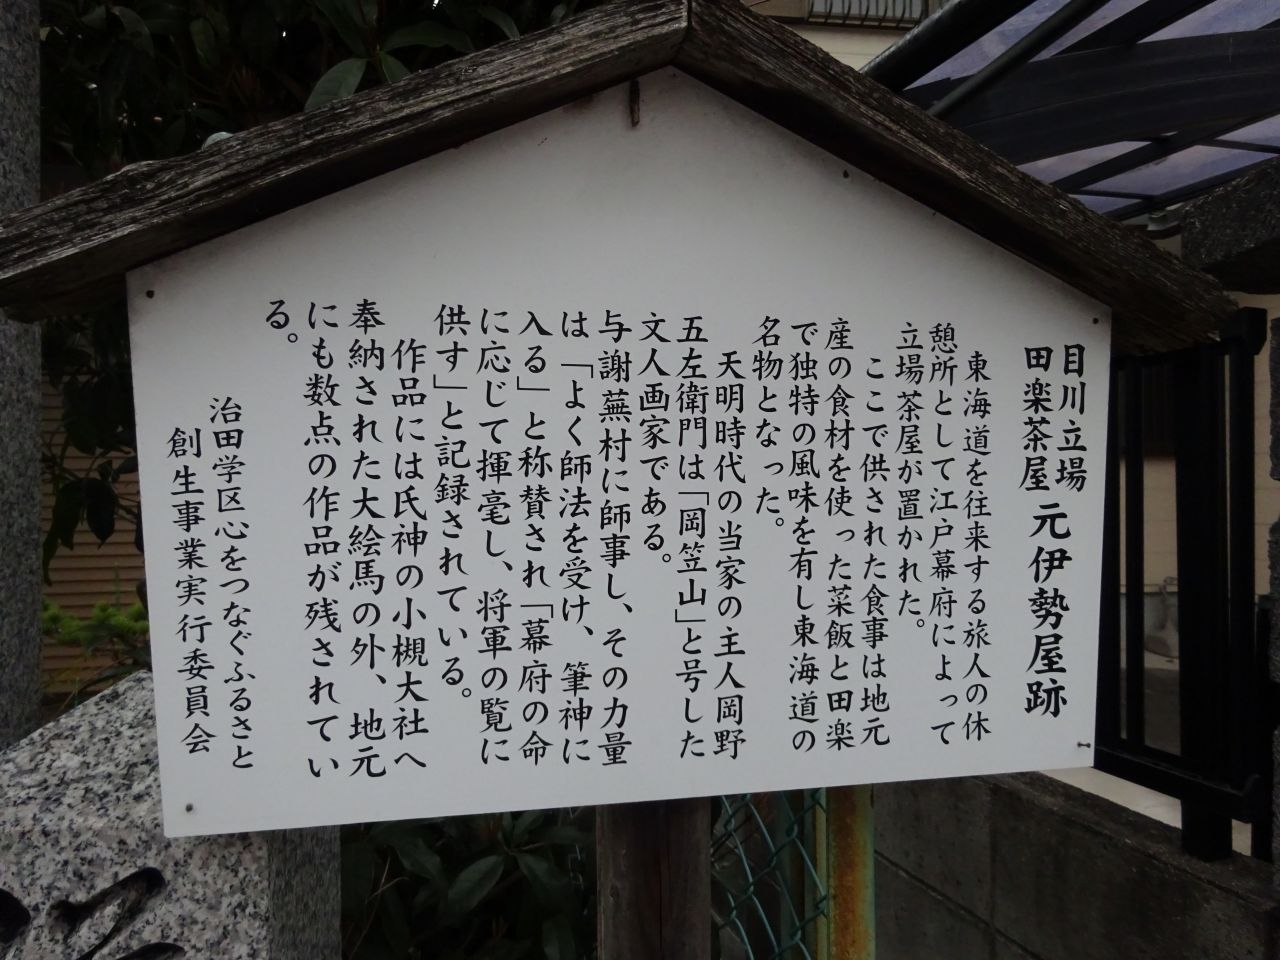 目川立場
田楽茶屋 元伊勢屋跡
東海道を往来する旅人の休
憩所として江戸幕府によって
立場茶屋が置かれた。
ここで供された食事は地元
産の食材を使った菜飯と田楽
で独特の風味を有し東海道の
名物となった。
天明時代の当家の主人岡野
五左衛門は「岡笠山」と号した
文人画家である。
与謝蕪村に師事し、その力量
は「よく師法を受け、筆神に
入る」と称賛され「幕府の命
に応じて揮毫し、将軍の覧に
供す」と記録されている。
作品には氏神の小槻大社へ
奉納された大絵馬の外、地元
にも数点の作品が残されてい
る。
治田学区心をつなぐふるさと
創生事業実行委員会